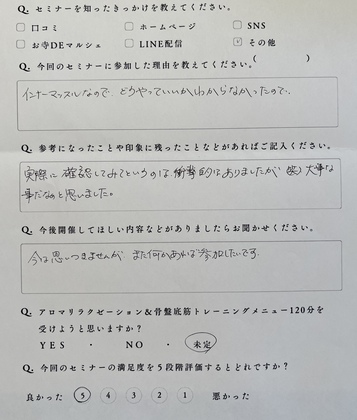 Q. セミナーを知ったきっかけを教えてください。
□ 口コミ □ ホームページ □ SNS
□ お寺DEマルシェ □ LINE配信 ☑ その他
( )
Q. 今回のセミナーに参加した理由を教えてください。
インナーマッスルなので、どうやっていいかわからなかったので、
Q. 参考になったことや印象に残ったことなどがあればご記入ください。
実際に確認してみてというのは、衝撃的はありましたが (笑) 大事な
事だなのと思いました。
Q. 今後開催してほしい内容などがありましたらお聞かせください。
今は思いつきませんが、また何かあれば参加したいです
Q. アロマリラクゼーション&骨盤底筋トレーニングメニュー120分を
受けようと思いますか?
YES ・ NO ・ 未定
Q. 今回のセミナーの満足度を5段階評価するとどれですか?
良かった 5 4 3 2 1 悪かった